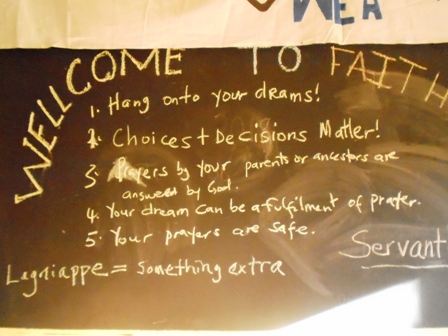 WEA
WELLCOME TO FAITH
1. Hang onto your drams!
2. Choices + Decisions Matler!
3. Prayers by your parents or ancestors are
answered by God.
4. Your dream can be a fulfilment of prayer.
5. Your prayers are safe.
Servant
Lagniappe = Something extra